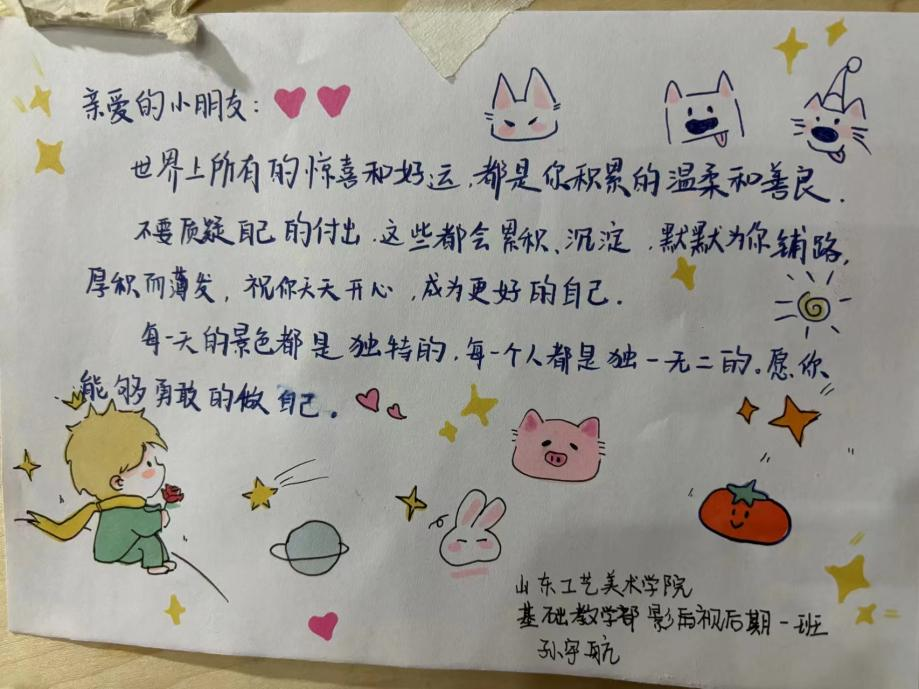 亲爱的小朋友:
世界上所有的惊喜和好运,都是你积累的温柔和善良.
不要质疑自己的付出.这些都会累积、沉淀,默默为你铺路,
厚积而薄发,祝你天天开心,成为更好的自己.
每一天的景色都是独特的,每一个人都是独一无二的。愿你
能够勇敢的做自己.
山东工艺美术学院
基础教学部影后视后期一班
孙宇航